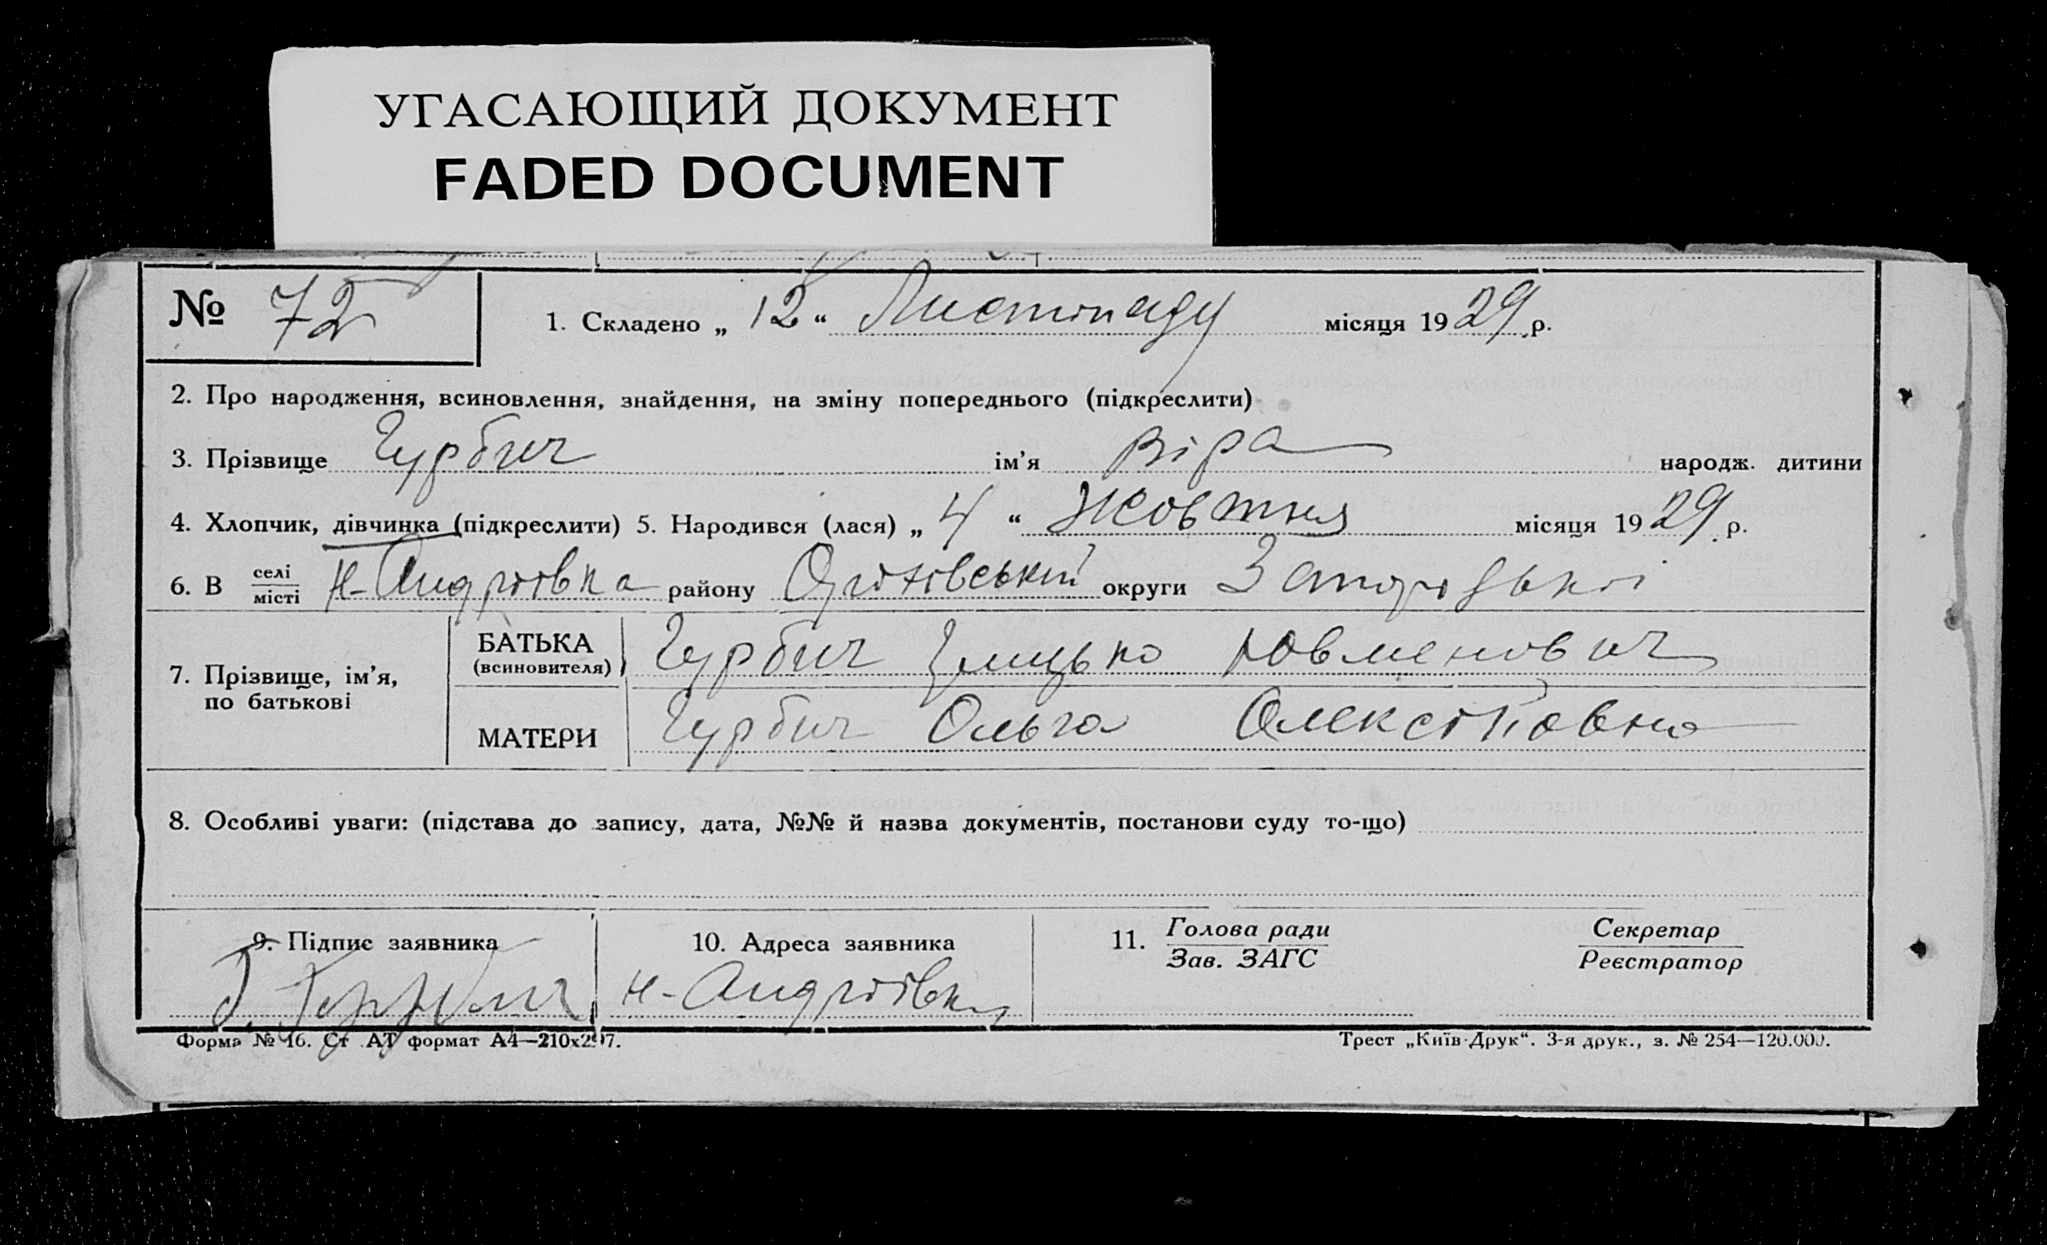 УГАСАЮЩИЙ ДОКУМЕНТ
FADED DOCUMENT
№ 72
1. Складено „ 12 “ Листопаду місяця 1929 р.
2. Про народження, всиновлення, знайдення, на зміну попереднього (підкреслити)
3. Прізвище Гурбич ім'я Віра народж. дитини
4. Хлопчик, дівчинка (підкреслити) 5. Народився (лася) „ 4 “ Жовтня місяця 1929 р.
6. В селі місті Н-Андріївка району Оріхівський округи Запорізької
7. Прізвище, ім'я, по батькові
БАТЬКА (всиновителя) Гурбич
МАТЕРИ Гурбич Ольга Олексіївна
8. Особливі уваги: (підстава до запису, дата, №№ й назва документів, постанови суду то-що)
9. Підпис заявника
10. Адреса заявника
Н-Андріївка
11. Голова ради Зав. ЗАГС
Секретар Реєстратор
Форма № 16. Ст АТ формат А4—210х297.
Трест „Київ-Друк“. 3-я друк., з. № 254—120.000.